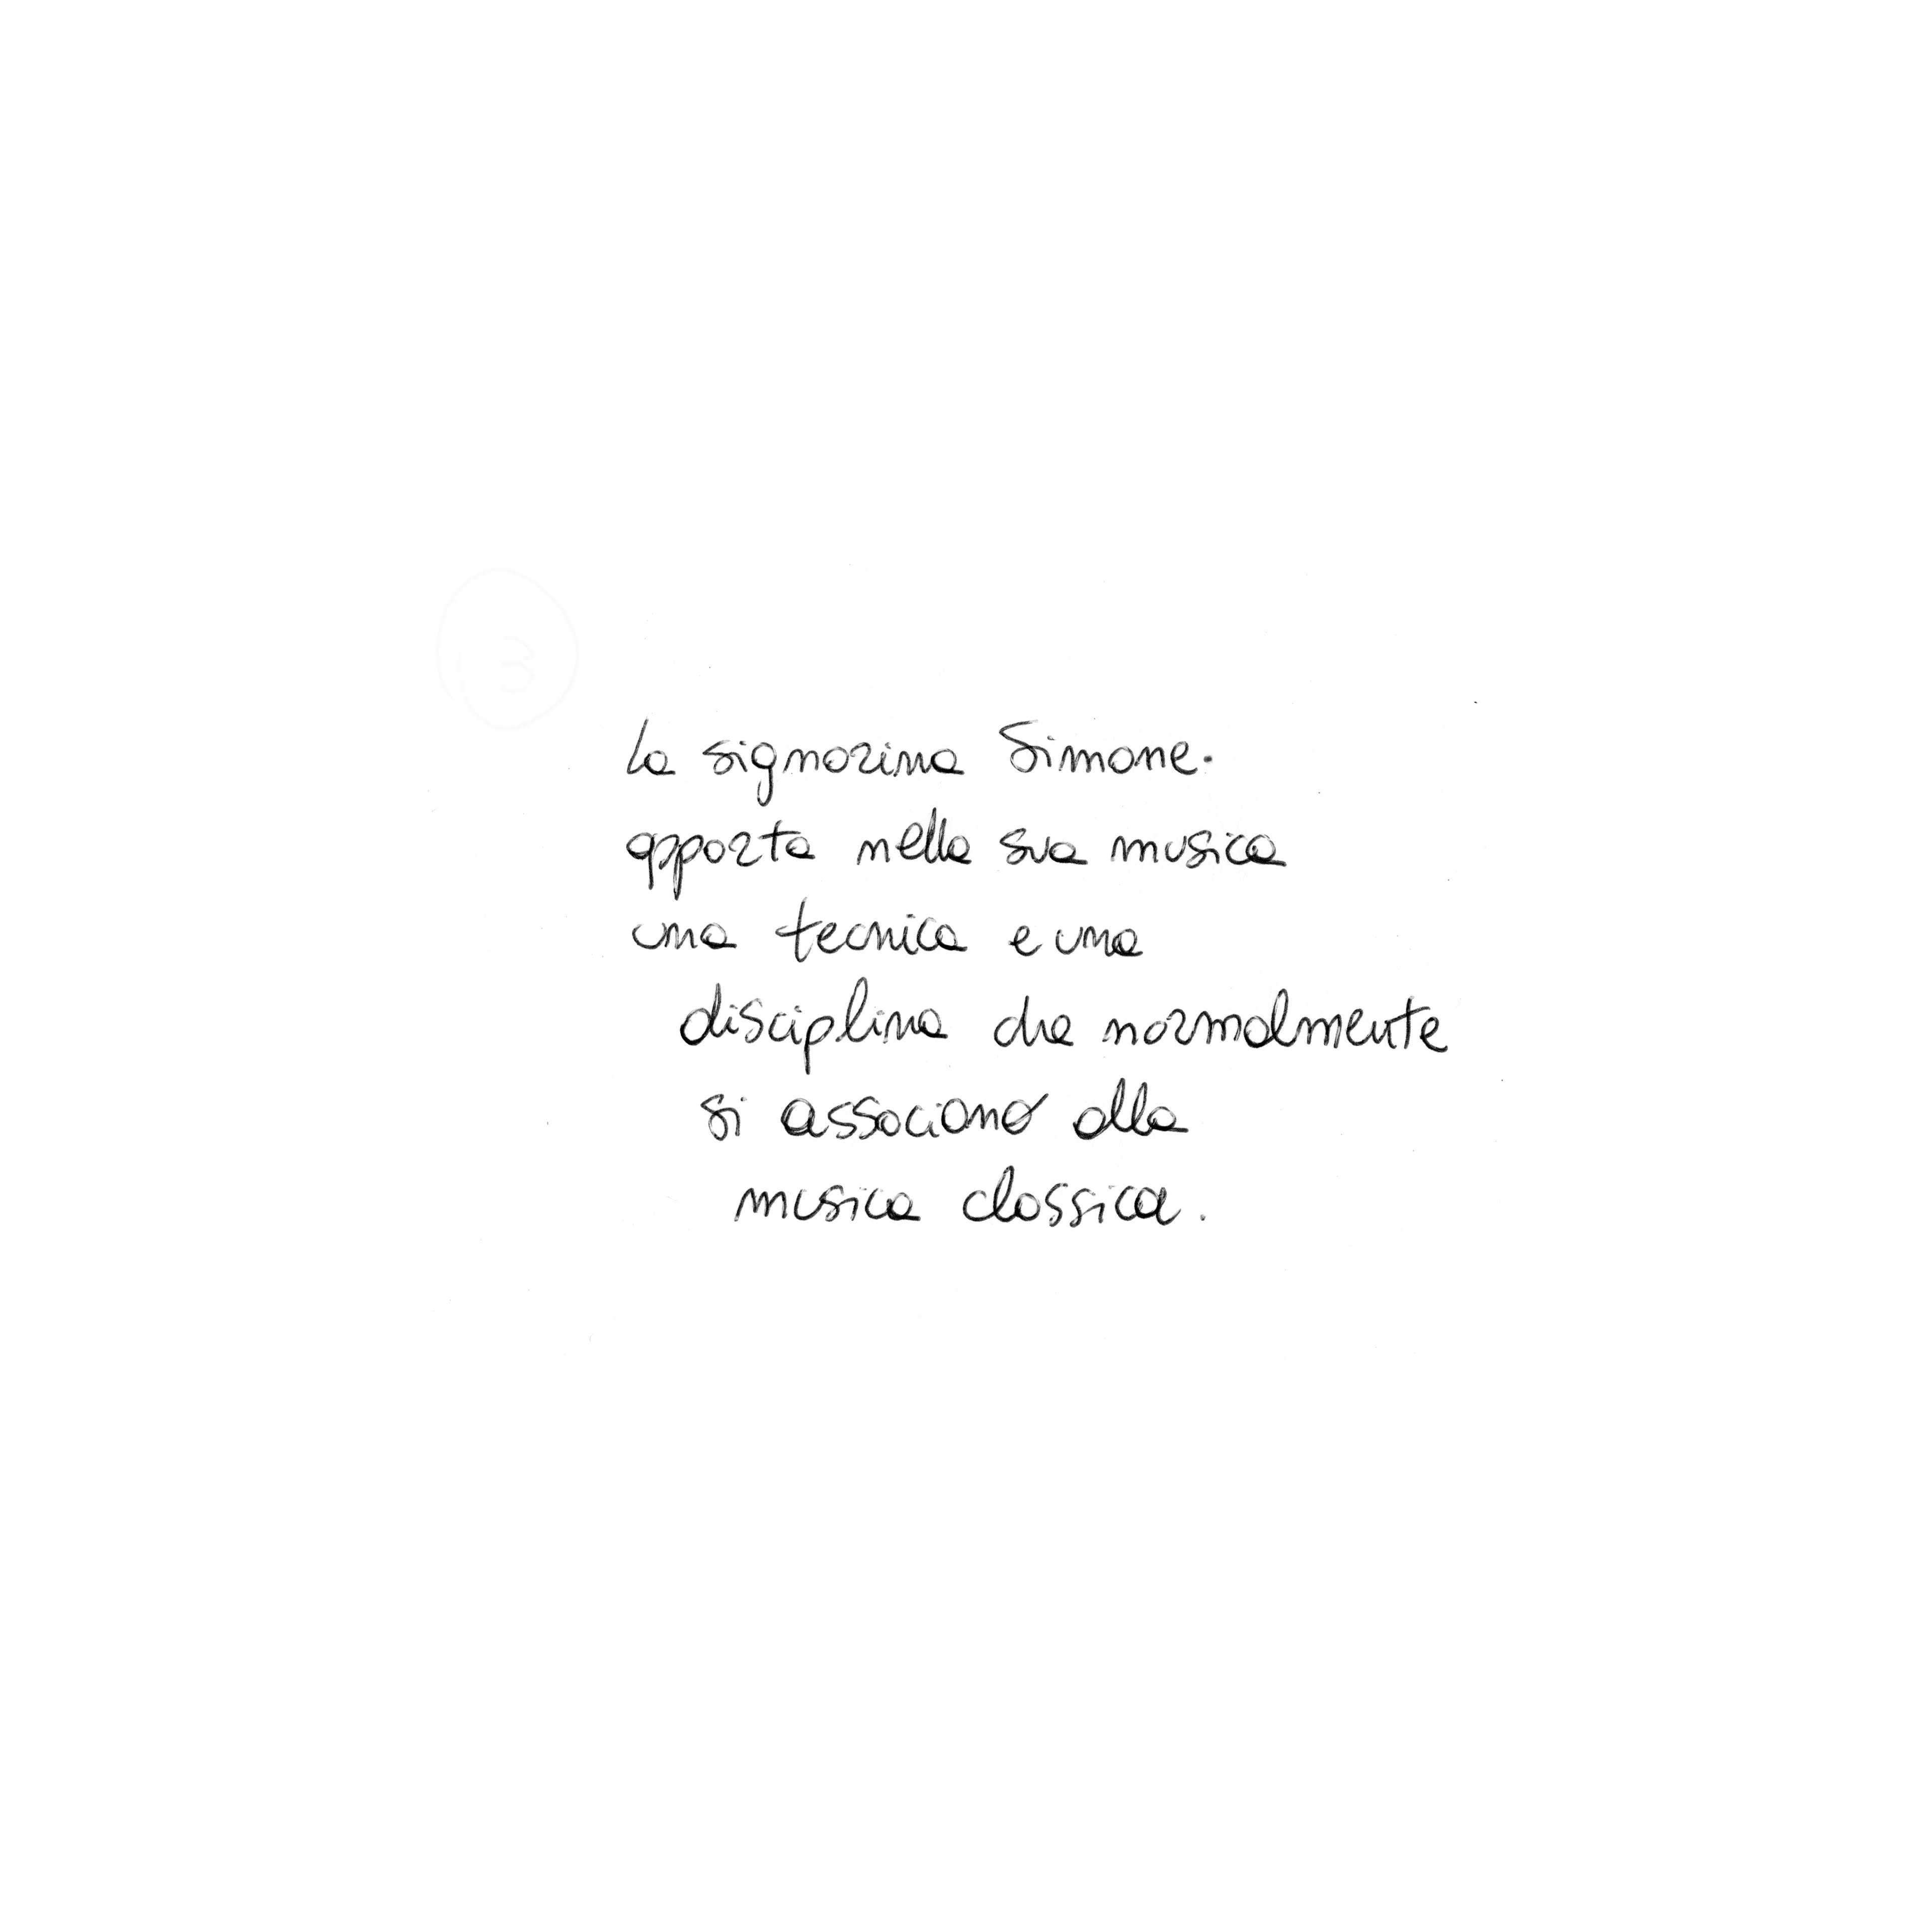 13
La signorina Simone.
apporta nella sua musica
una tecnica e una
disciplina che normalmente
si associano alla
musica classica.